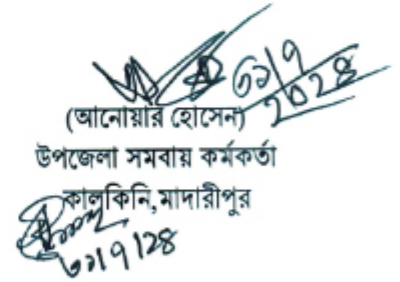 ৩১/৭
২০২৪
(আনোয়ার হোসেন)
উপজেলা সমবায় কর্মকর্তা
কালকিনি,মাদারীপুর
৩১/৭/২৪